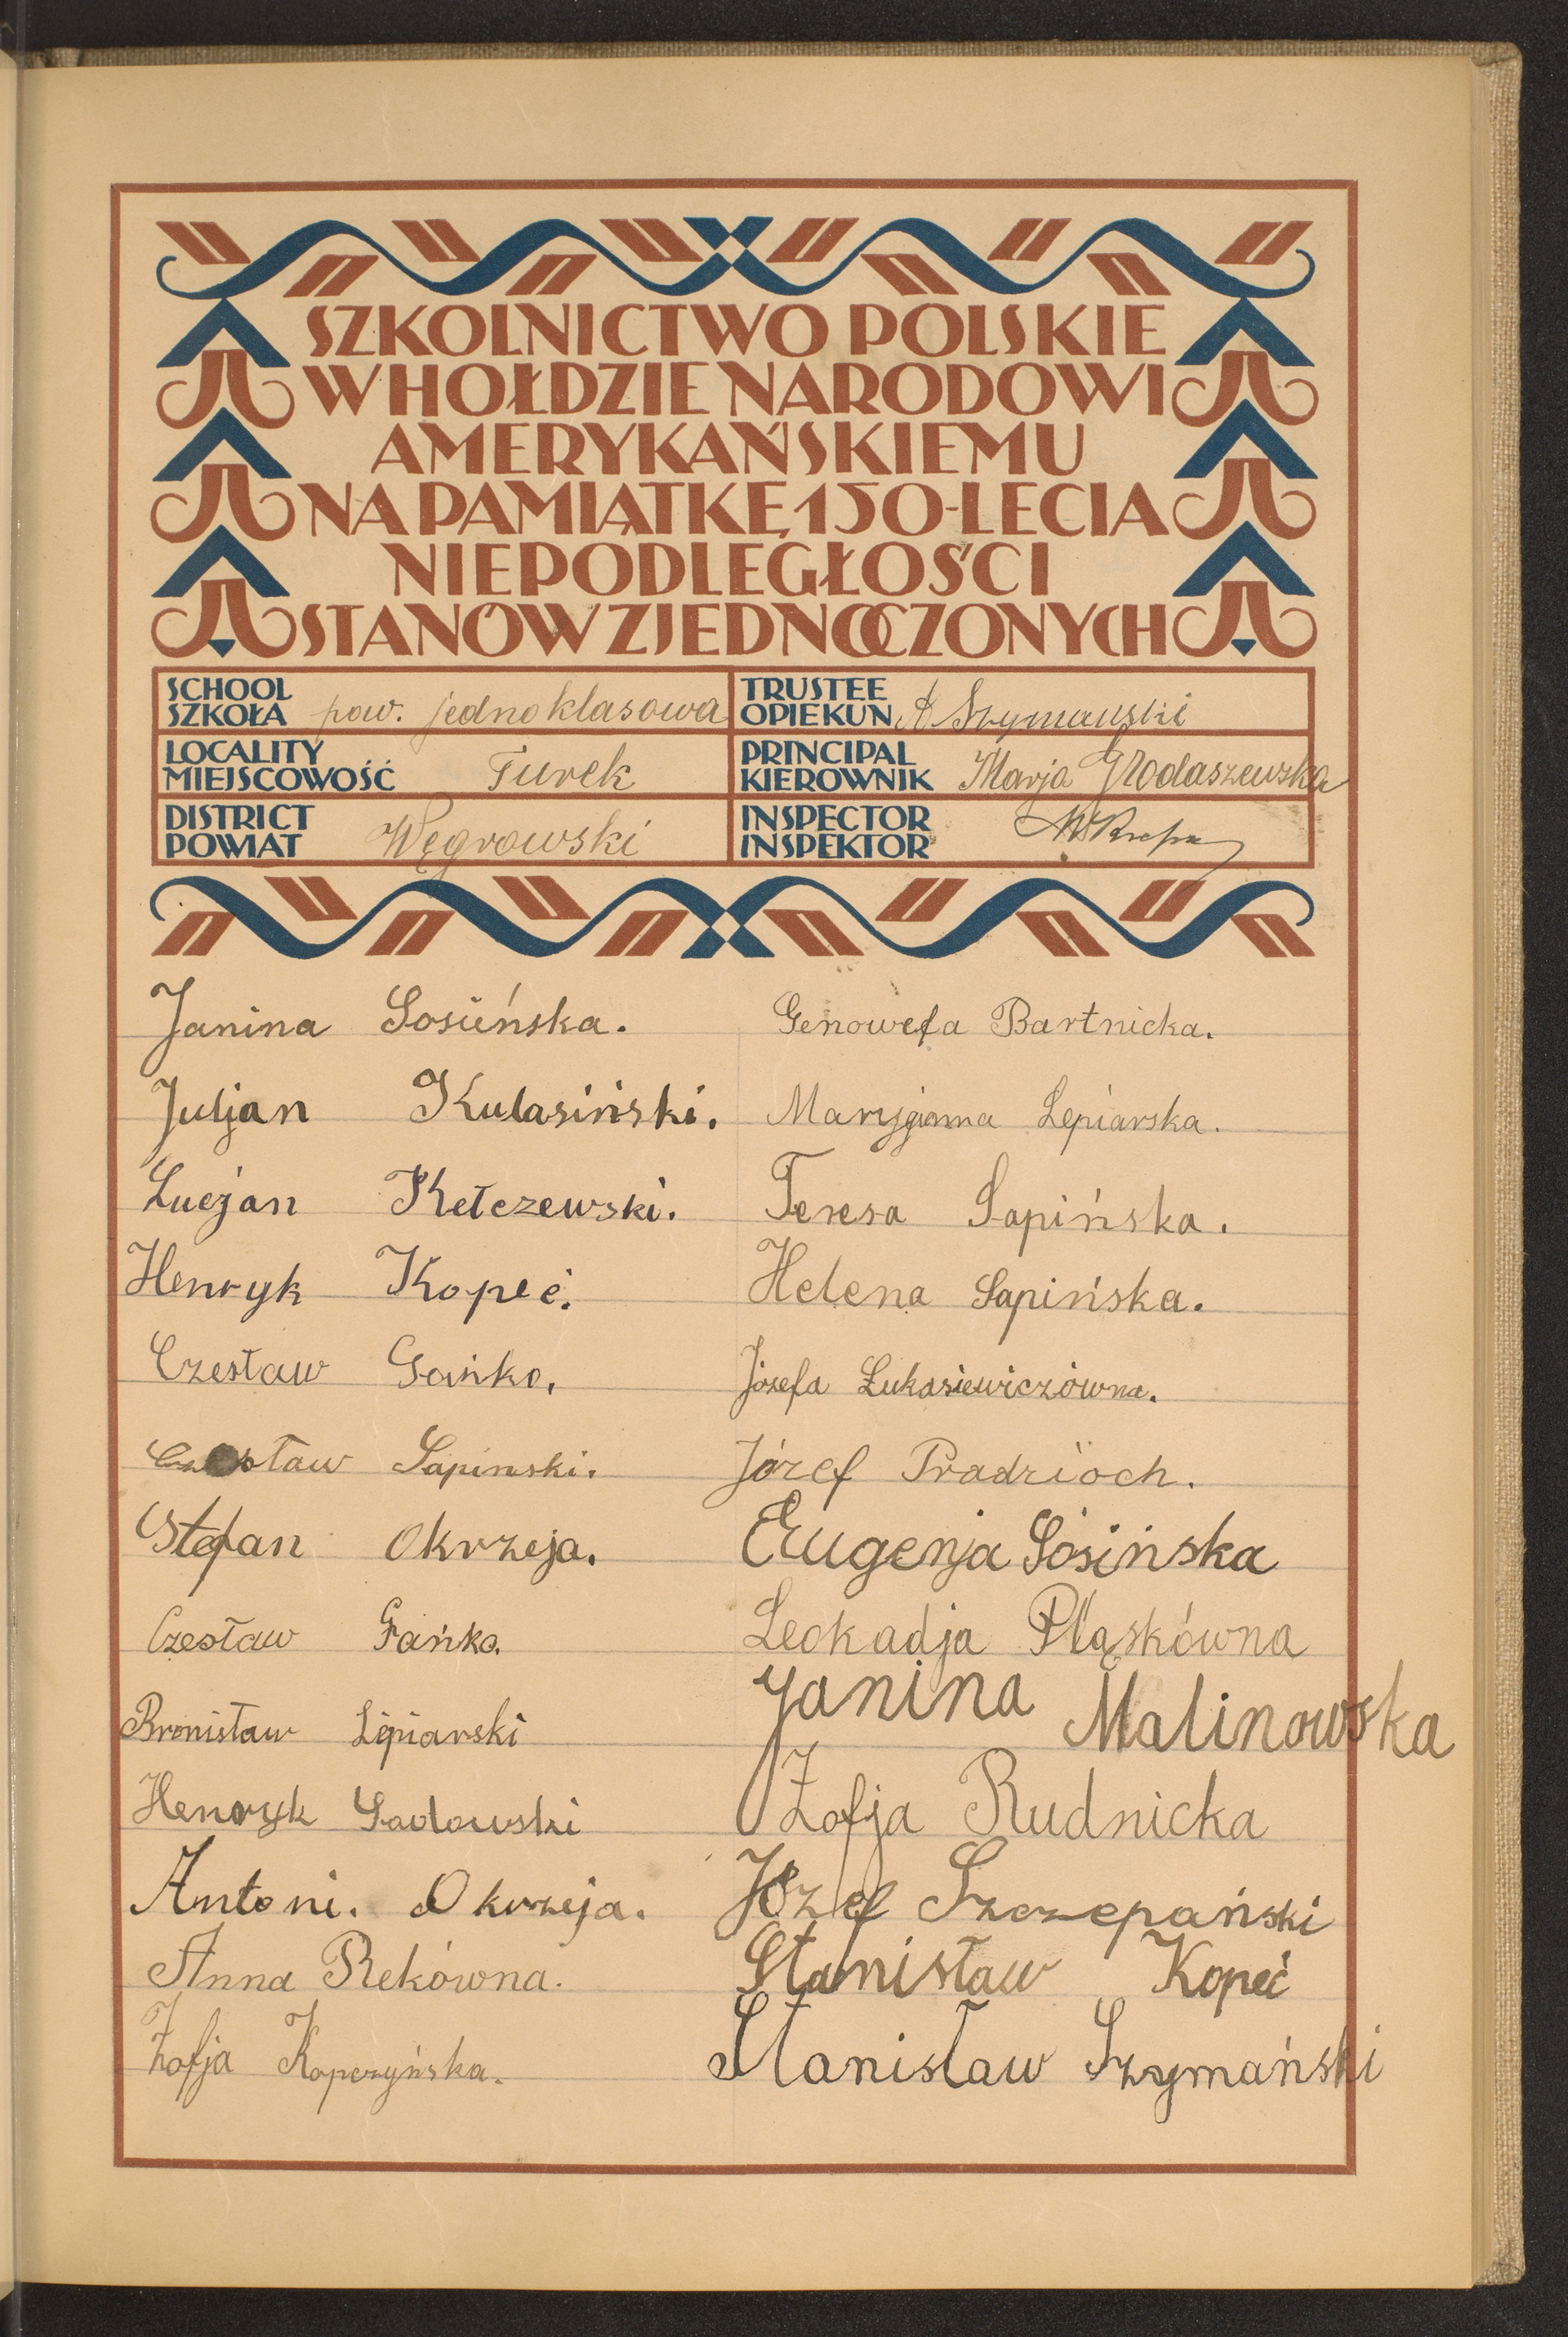 SZKOLNICTWO POLSKIE
W HOŁDZIE NARODOWI
AMERYKAŃSKIEMU
NA PAMIĄTKĘ 150-LECIA
NIEPODLEGŁOŚCI
STANÓW ZJEDNOCZONYCH
SCHOOL
SZKOŁA pow. jednoklasowa
TRUSTEE
OPIEKUN A Szymański
LOCALITY
MIEJSCOWOŚĆ Turek
PRINCIPAL
KIEROWNIK Marja Grodaszewska
DISTRICT
POWIAT Węgrowski
INSPECTOR
INSPEKTOR
Janina Sosieńska.
Juljan Kulasiński.
Lucjan Kełczewski.
Henryk Kopeć.
Czesław Gańko.
Czesław Sapinski.
Stefan Okrzeja.
Czesław Gańko.
Bronisław Lipiarski
Henryk Sadowski
Antoni. Okrzeja.
Anna Rekówna.
Zofja Kopczyńska.
Genowefa Bartnicka.
Maryjanna Lepiarska.
Teresa Sapińska.
Helena Sapińska.
Józefa Łukasiewiczówna.
Józef Pradzioch.
Eugenja Sosińska
Leokadja Pląskówna
Janina Malinowska
Zofja Rudnicka
Józef Szczepański
Stanisław Kopeć
Stanisław Szymański